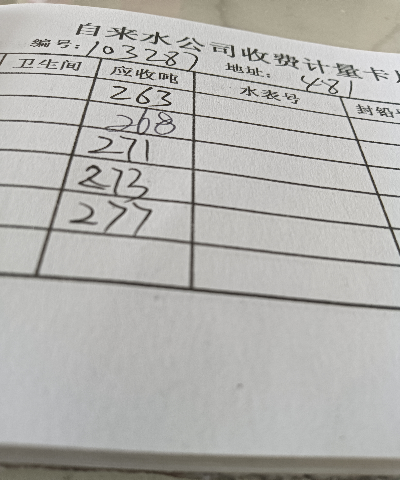 自来水公司收费计量卡
编号:103287 地址:481
卫生间 应收吨 水表号 封铅
263
268
271
273
277